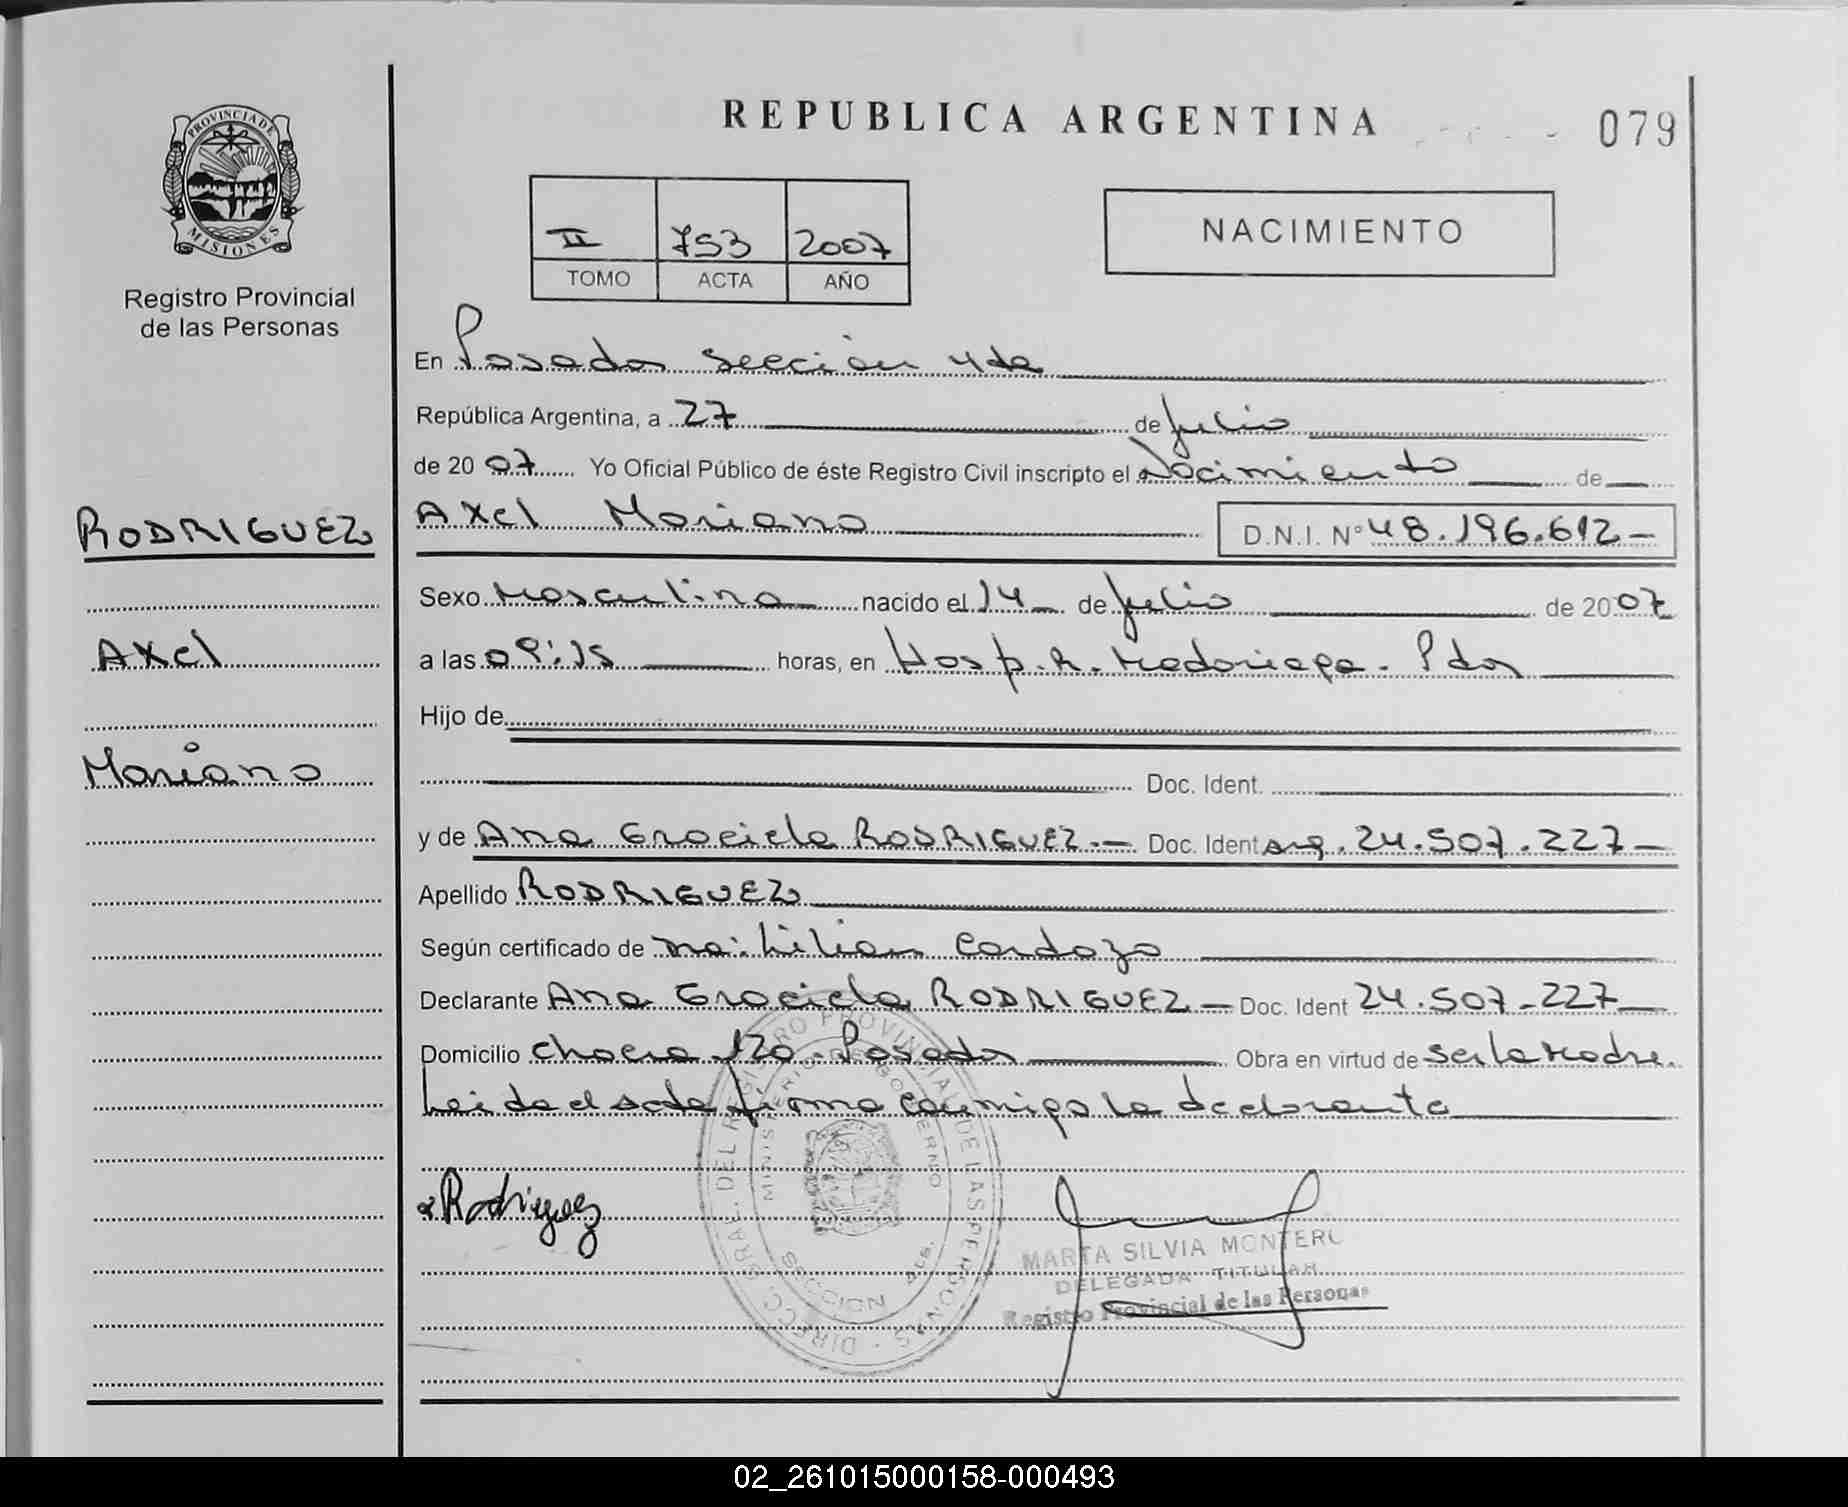 PROVINCIA DE
MISIONES
Registro Provincial
de las Personas
RODRIGUEZ
Axel
Mariano
REPUBLICA ARGENTINA
079
II 753 2007
TOMO ACTA AÑO
NACIMIENTO
En Posadas sección 4ta
República Argentina, a 27 de Julio
de 2007 Yo Oficial Público de éste Registro Civil inscripto el Nacimiento de
Axel Mariano D.N.I. Nº 48.196.612-
Sexo Masculino nacido el 14 de Julio de 2007
a las 09:15 horas, en Hosp. R. Madariaga - Pdas
Hijo de
Doc. Ident.
y de Ana Graciela RODRIGUEZ.- Doc. Ident arg. 24.507.227-
Apellido RODRIGUEZ
Según certificado de Lilian Cardozo
Declarante Ana Graciela RODRIGUEZ - Doc. Ident 24.507-227-
Domicilio Chacra 120 - Posadas Obra en virtud de ser la Madre.
Leida el acta firma conmigo la declarante
Rodriguez
DIRECC. GRAL. DEL REGISTRO PROVINCIAL DE LAS PERSONAS
MINISTERIO DE GOBIERNO
SECCION
MARTA SILVIA MONTERO
DELEGADA TITULAR
Registro Provincial de las Personas
02_261015000158-000493